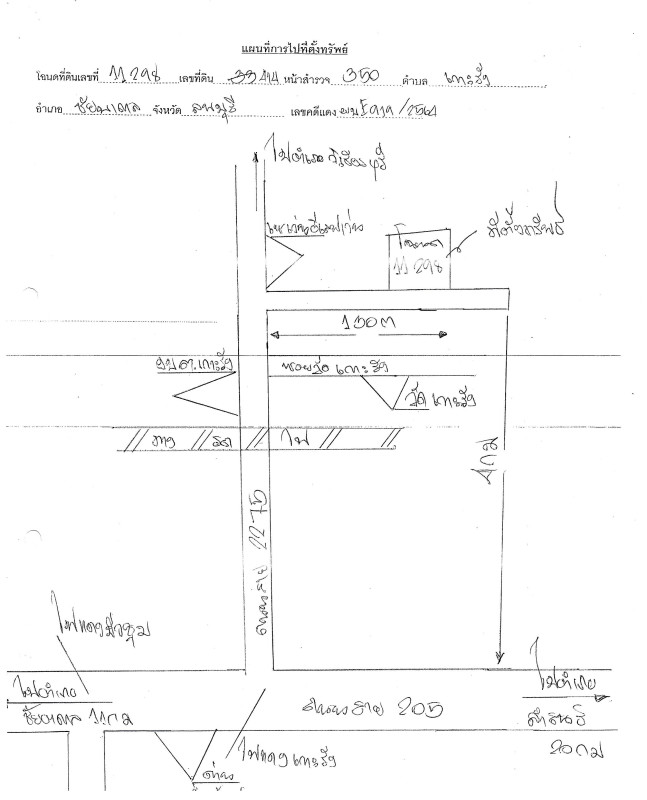 แผนที่การไปที่ตั้งทรัพย์
โฉนดที่ดินเลขที่ 11298 เลขที่ดิน 33414 หน้าสำรวจ 350 ตำบล เกาะรัง
อำเภอ ชัยบาดาล จังหวัด ลพบุรี เลขคดีแดง /2564
ไปอำเภอวิเชียรบุรี
โฉนด
11298
ที่ตั้งทรัพย์
130 ต
อบต.เกาะรัง
ซอยวัดเกาะรัง
วัดเกาะรัง
ทาง รถ ไฟ
4 กม
ถนนสาย 2275
ไฟแดงม่วงชุม
ไปอำเภอ
ชัยบาดาล 11 กม
ถนนสาย 205
ไปอำเภอ
ลำสนธิ
20 กม
ไฟแดงเกาะรัง
ด่าน